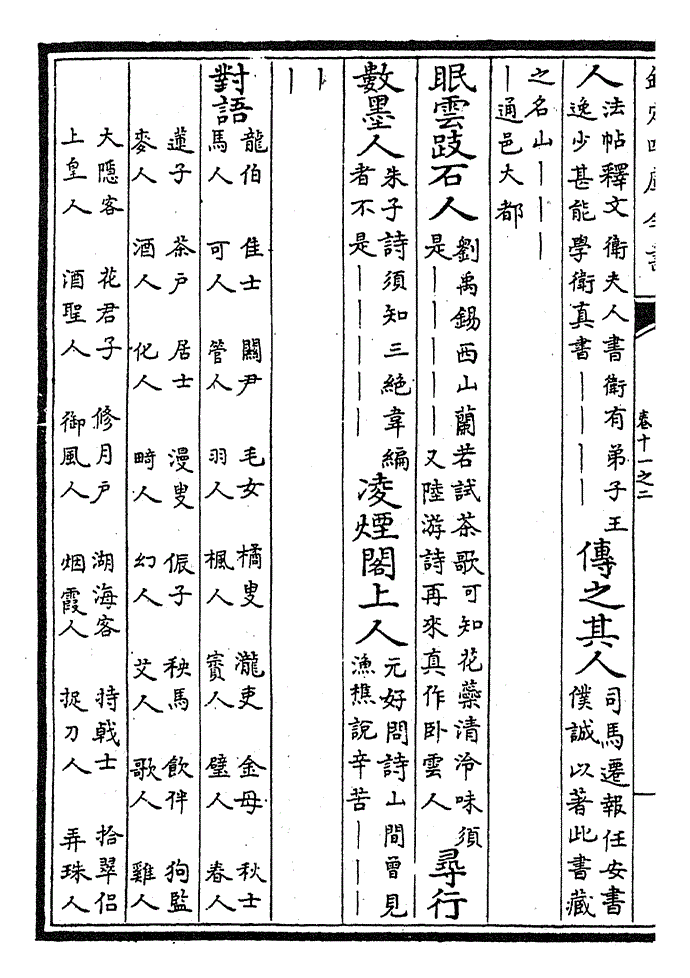 欽定四庫全書
卷十一之二
人 法帖釋文衛夫人書衛有弟子王
逸少甚能學衛真書丨丨丨丨
傳之其人 司馬遷報任安書
僕誠以著此書藏
之名山丨丨丨丨
丨通邑大都
眠雲跂石人 劉禹錫西山蘭若試茶歌可知花蘂清泠味須
是丨丨丨丨丨又陸游詩再來真作卧雲人
尋行
數墨人 朱子詩須知三絶韋編
者不是丨丨丨丨丨
凌煙閣上人 元好問詩山間曾見
漁樵説辛苦丨丨丨
丨丨
對語 龍伯 佳士 關尹 毛女 橘叟 瀧吏 金母 秋士
馬人 可人 管人 羽人 楓人 賨人 璧人 春人
蓮子 茶户 居士 漫叟 侲子 秧馬 飲伴 狗監
麥人 酒人 化人 畸人 幻人 艾人 歌人 雞人
大隱客 花君子 修月户 湖海客 持戟士 拾翠侣
上皇人 酒聖人 御風人 烟霞人 捉刀人 弄珠人